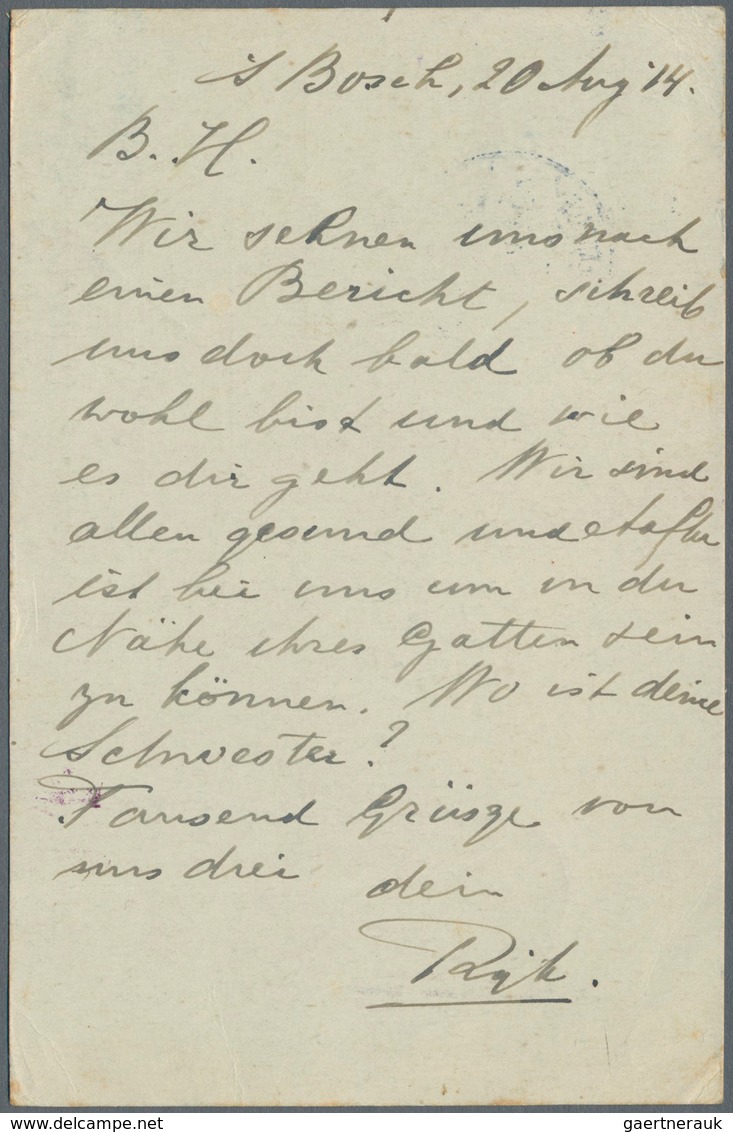 's Bosch, 20 Aug '14.
B. H.
Wir sehnen uns nach
einen Bericht, schreib
uns doch bald ob du
wohl bist und wie
es dir geht. Wir sind
allen gesund und
ist bei uns um in der
Nähe ihres Gatten sein
zu können. Wo ist deine
Schwester?
Tausend Grüsze von
uns drei
dein
Rijk.
gaertnerauk